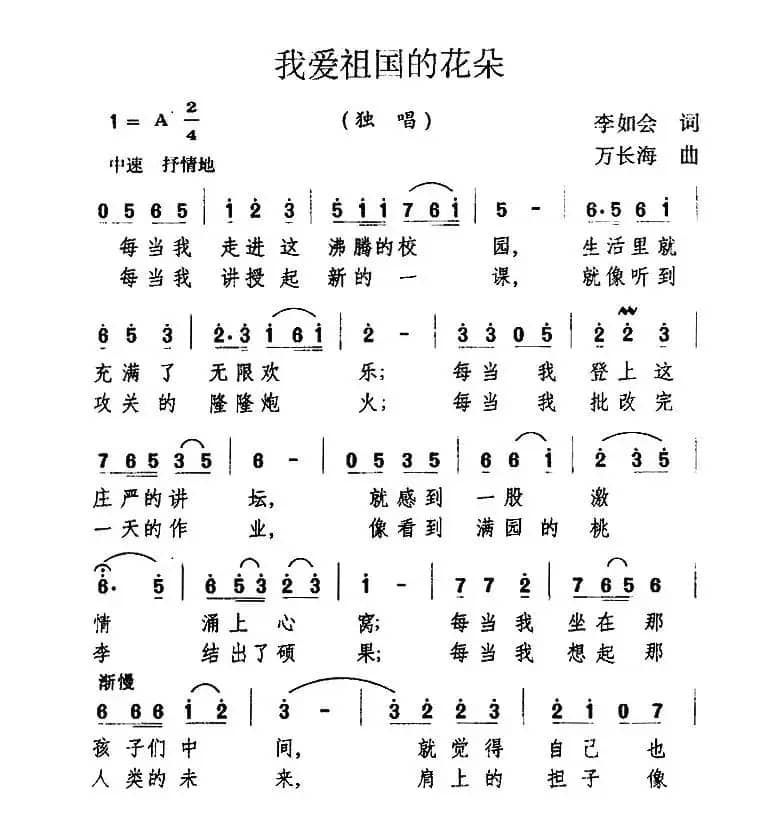 我爱祖国的花朵
1 = A 2/4 （独 唱） 李如会 词
中速 抒情地 万长海 曲
0 5 6 5 | i 2 3 | 5 i i 7 6 i | 5 - | 6. 5 6 i |
每当我 走进这 沸腾的校 园， 生活里就
每当我 讲授起 新的一 课， 就像听到
6 5 3 | 2. 3 i 6 i | 2 - | 3 3 0 5 | 2 2 3 |
充满了 无限欢 乐； 每当 我 登上这
攻关的 隆隆炮 火； 每当 我 批改完
7 6 5 3 5 | 6 - | 0 5 3 5 | 6 6 i | 2 3 5 |
庄严的讲 坛， 就感到 一股 激
一天的作 业， 像看到 满园的 桃
6. 5 | 6 5 3 2 3 | i - | 7 7 2 | 7 6 5 6 |
情 涌上 心 窝； 每当我 坐在那
李 结出了硕 果； 每当我 想起那
渐慢
6 6 6 i 2 | 3 - | 3 2 2 3 | 2 i 0 7 |
孩子们中 间， 就觉得 自己 也
人类的未 来， 肩上的 担子 像